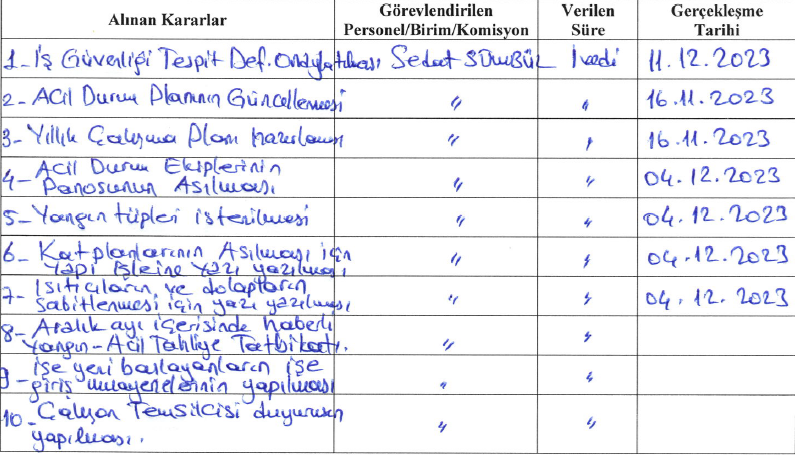 Alınan Kararlar Görevlendirilen Personel/Birim/Komisyon Verilen Süre Gerçekleşme Tarihi
1- İş Güvenliği Tespit Def. Onaylatılması Sedat SÜMBÜL İvedi 11.12.2023
2- Acil Durum Planının Güncellenmesi " " 16.11.2023
3- Yıllık Çalışma Planı hazırlanması " " 16.11.2023
4- Acil Durum Ekiplerinin
Panosunun Asılması " " 04.12.2023
5- Yangın tüpleri istenilmesi " " 04.12.2023
6- Kat planlarının Asılması için
Yapı işlerine yazı yazılması " " 04.12.2023
7- Isıtıcıların ve dolapların
Sabitlenmesi için yazı yazılması. " " 04.12.2023
8- Aralık ayı içerisinde haberli
Yangın-Acil Tahliye Tatbikatı. " "
9- işe yeni başlayanların işe
giriş muayenelerinin yapılması " "
10- Çalışan Temsilcisi duyurusun
yapılması. " "